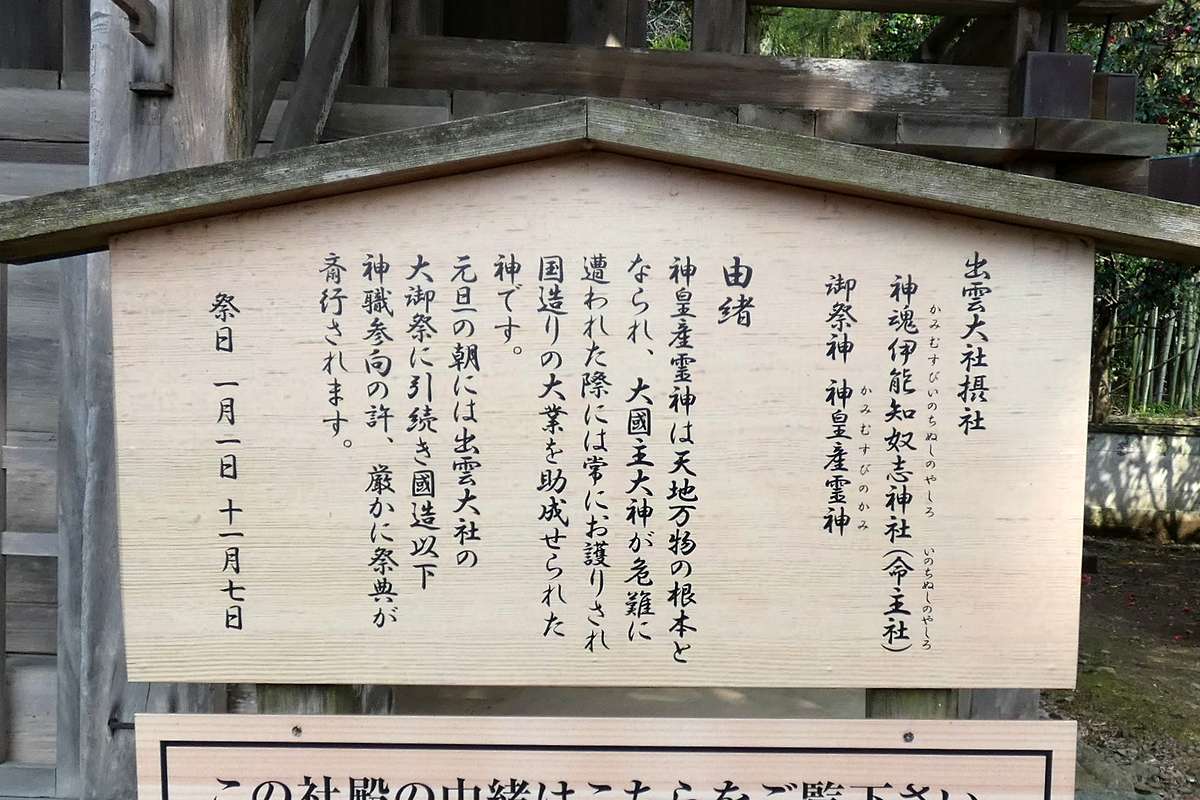 出雲大社摂社
かみむすびいのちぬしのやしろ いのちぬしのやしろ
神魂伊能知奴志神社(命主社)
かみむすびのかみ
御祭神 神皇産霊神
由緒
神皇産霊神は天地万物の根本と
なられ、大國主大神が危難に
遭われた際には常にお護りされ
国造りの大業を助成せられた
神です。
元旦の朝には出雲大社の
大御祭に引続き國造以下
神職参向の許、厳かに祭典が
斎行されます。
祭日 一月一日 十一月七日
この社殿の由緒はこちらをご覧下さい